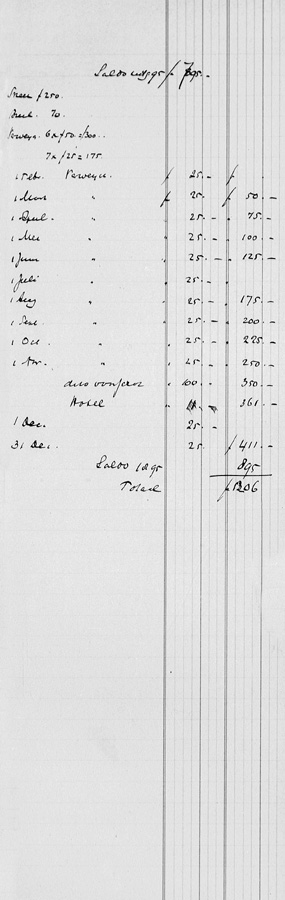 Saldo ƒ 795.-
ƒ 250.
70.
6 x ƒ 50 = 300.
7 x ƒ 25 = 175
1 Feb. ƒ 25.- ƒ
1 Maart " ƒ 25. ƒ 50.-
1 April " " 25.- " 75.-
1 Mei " " 25.- " 100.-
1 Juni " " 25.- " 125.-
1 Juli " 25.-
1 Aug " " 25.- " 175.-
1 Sept. " " 25.- " 200.-
1 Oct. " " 25.- " 225.-
1 Nov. " " 25.- " 250.-
" 100.- " 350.-
Hotel " 11.- " 361.-
1 Dec. 25.-
31 Dec. 25. ƒ 411.-
Saldo 1895 895
Totaal ƒ 1306